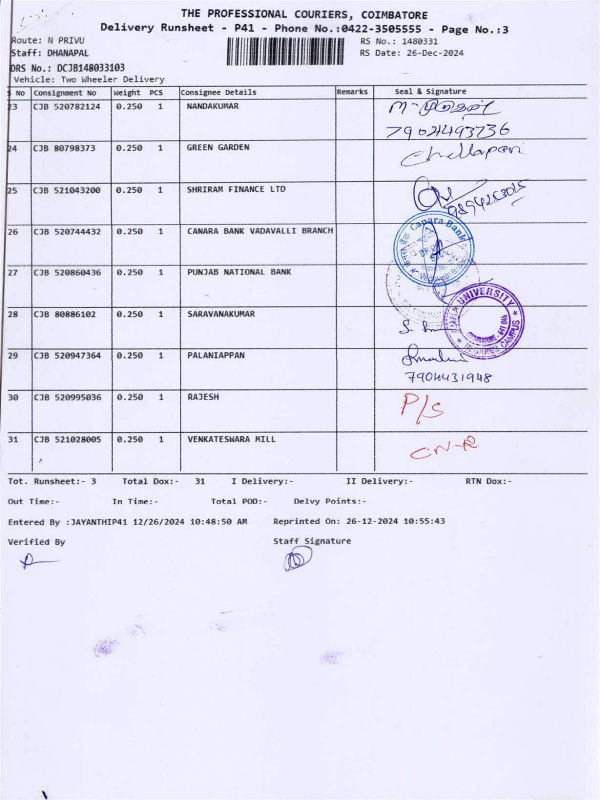 THE PROFESSIONAL COURIERS, COIMBATORE
Delivery Runsheet - P41 - Phone No.:0422-3505555 - Page No.:3
Route: N PRIVU
RS No.: 1480331
Staff: DHANAPAL
RS Date: 26-Dec-2024
DRS No.: DCJB148033103
Vehicle: Two Wheeler Delivery
S No Consignment No Weight PCS Consignee Details Remarks Seal & Signature
23 CJB 520782124 0.250 1 NANDAKUMAR
7902493736
24 CJB 80798373 0.250 1 GREEN GARDEN Chellapan
25 CJB 521043200 0.250 1 SHRIRAM FINANCE LTD
26 CJB 520744432 0.250 1 CANARA BANK VADAVALLI BRANCH Canara Bank
27 CJB 520860436 0.250 1 PUNJAB NATIONAL BANK
UNIVERSITY
REGIONAL CAMPUS
28 CJB 80886102 0.250 1 SARAVANAKUMAR
29 CJB 520947364 0.250 1 PALANIAPPAN
7904431948
30 CJB 520995036 0.250 1 RAJESH P/S
31 CJB 521028005 0.250 1 VENKATESWARA MILL
Tot. Runsheet:- 3 Total Dox:- 31 I Delivery:- II Delivery:- RTN Dox:-
Out Time:- In Time:- Total POD:- Delvy Points:-
Entered By :JAYANTHIP41 12/26/2024 10:48:50 AM Reprinted On: 26-12-2024 10:55:43
Verified By Staff Signature